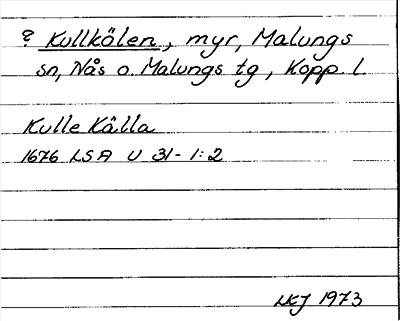 ? Kullkölen, myr, Malungs
sn, Nås o. Malungs tg, Kopp. l.
Kulle Källa
1676 LSA U 31-1:2
LKJ 1973